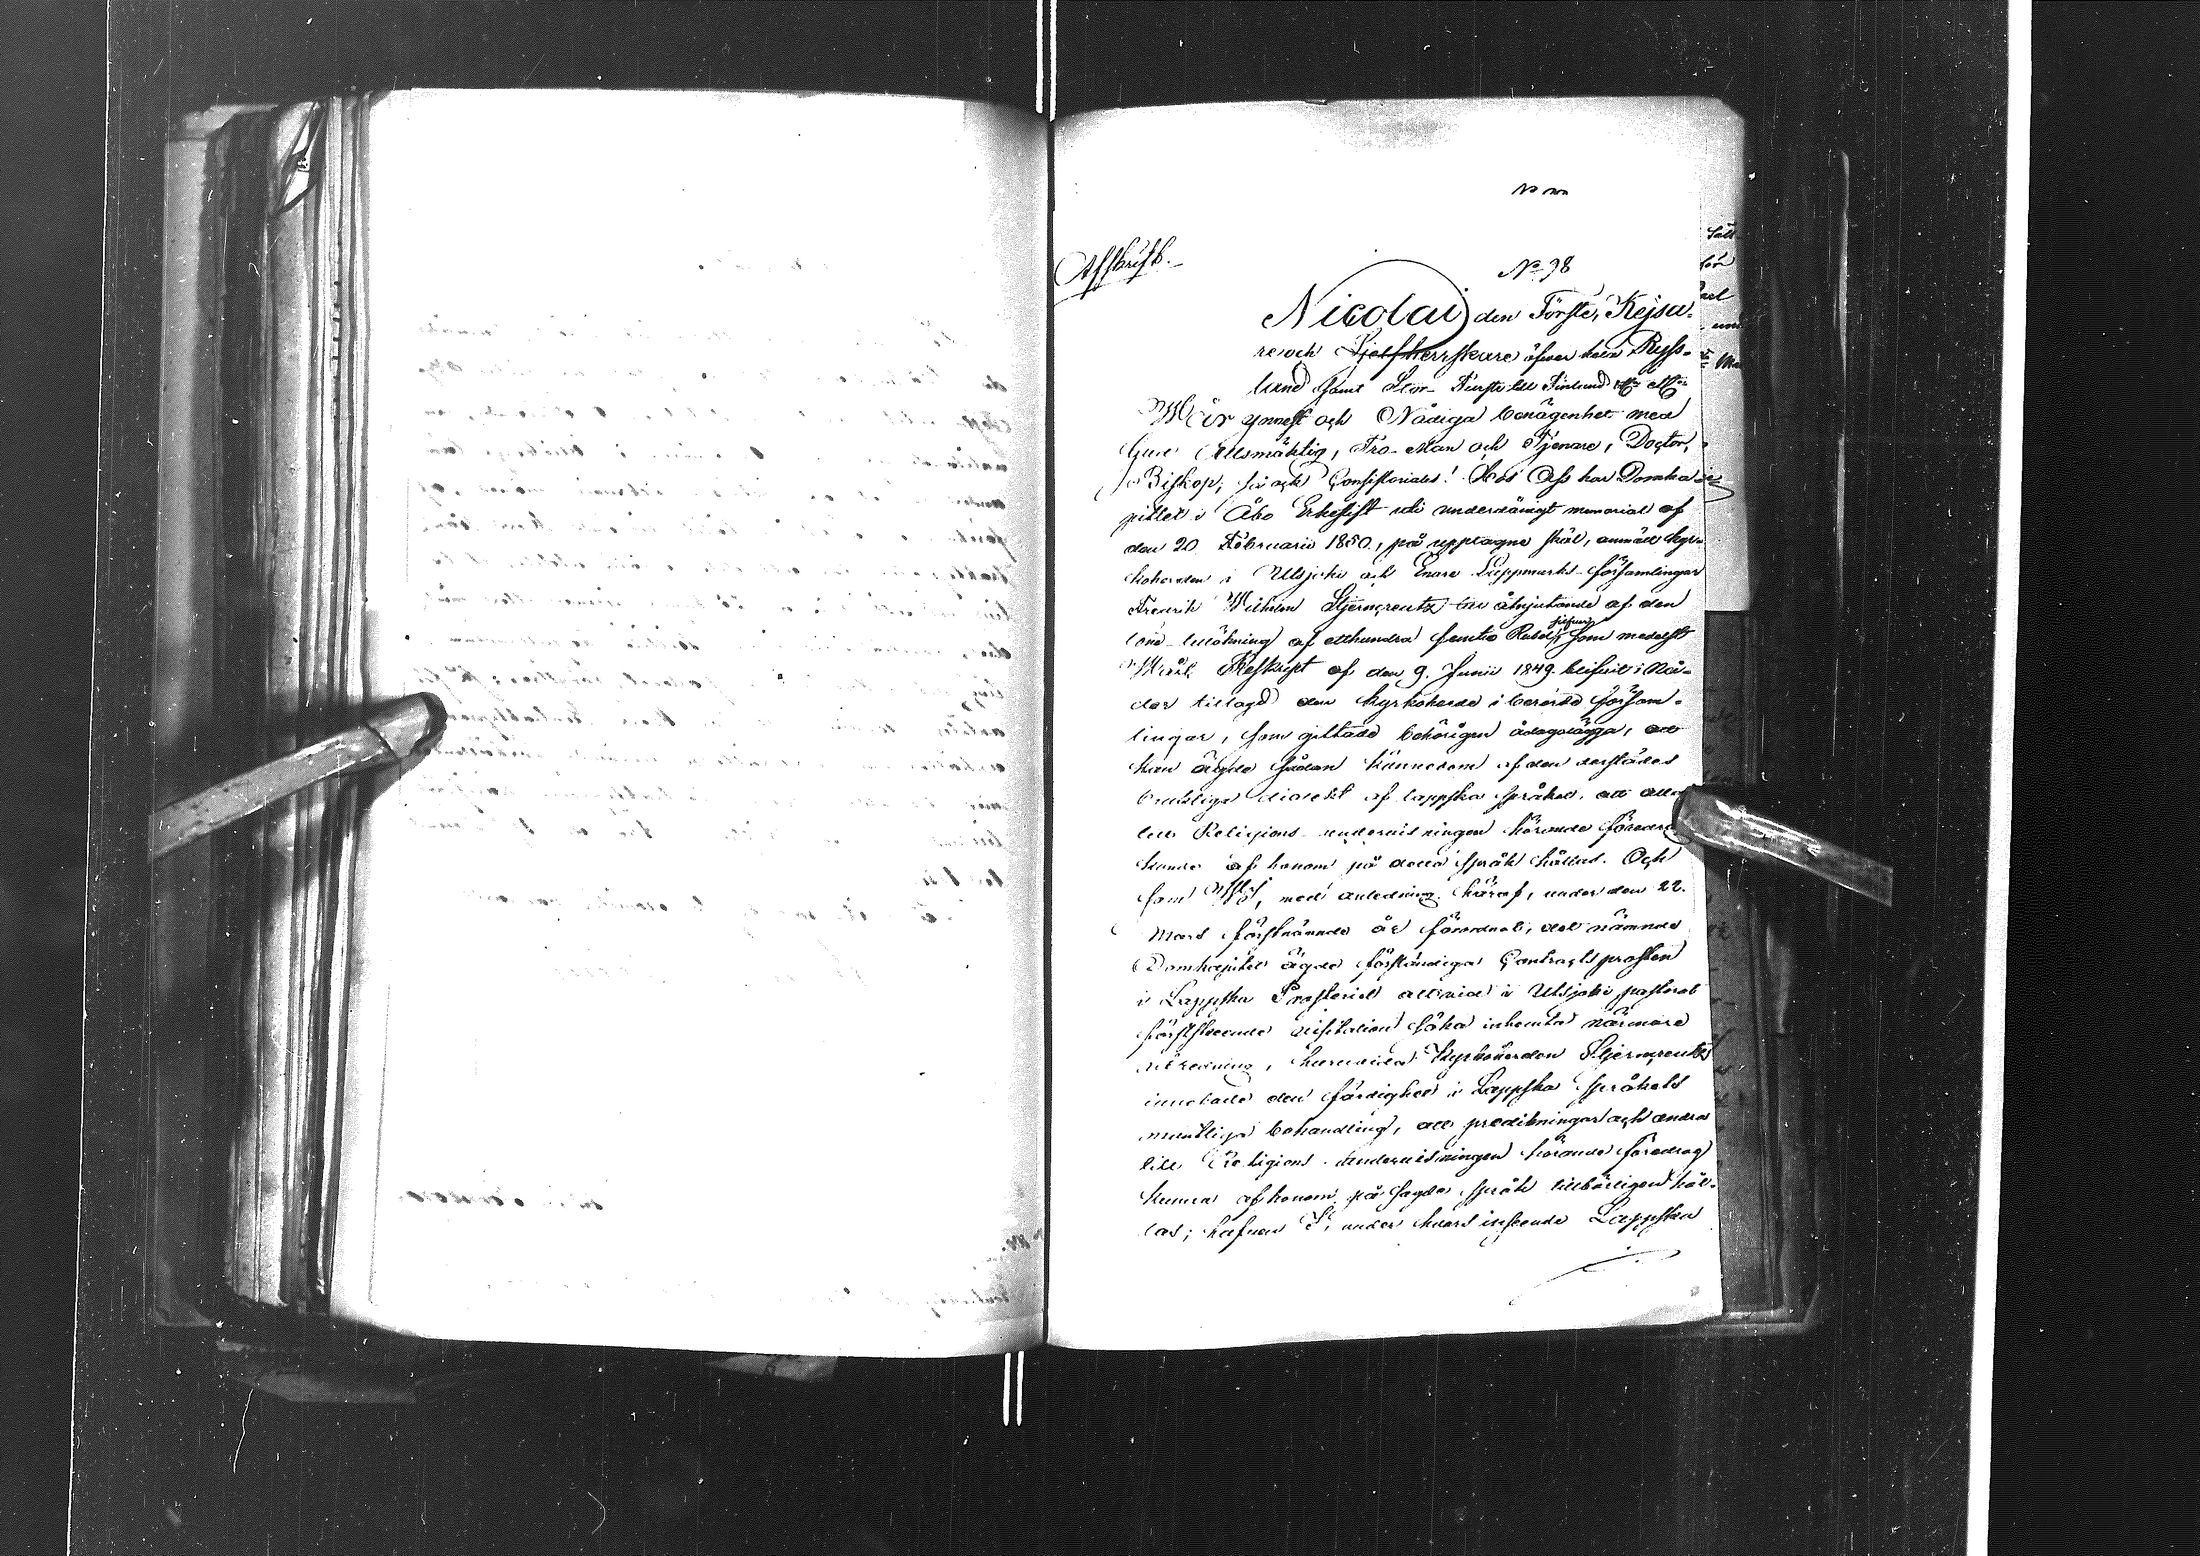 Afskrift.
No 98
Nicolai den Förste, Kejsa-
re och Sjelfherrskare öfver hela Ryss-
land samt Stor-Furste till Finland etc. etc.
Vår ynnest och Nådiga benägenhet med
Gud Allsmäktig, Tro-Man och Tjenare, Doctor,
Biskop, så och Consistoriales! Hos Oss har Domka-
pitlet i Åbo Erkestift uti underdånigt memorial af
den 20 Februarii 1850, på upptagne skäl, anmält Kyr-
koherden i Utsjoki och Enare Lappmarks-församlingar
Fredrik Wilhelm Stjerncreutz till åtnjutande af den
löne-tillökning af etthundra femtio Rubel silfver, som medelst
Vårt Reskript af den 9. Junii 1849 blifvit i Nå-
der tillagd den Kyrkoherde i berörde försam-
lingar, som gittade behörigen ådagalägga, att
han ägde sådan kännedom af den derstädes
brukliga dialekt af lappska språket, att alla
till Religions-undervisningen hörande föredrag
kunde af honom på detta språk hållas. Och
som Vi, med anledning häraf, under den 22.
Mars sistnämnde år förordnat, det nämnde
Domkapitel ägde förständiga Contractsprosten
i Lappska Prosteriet att vid i Utsjoki pastorat
förestående visitation söka inhemta närmare
utredning, huruvida Kyrkoherden Stjerncreutz
innehade den färdighet i Lappska språkets
muntliga behandling, att predikningar och andra
till Religions-undervisningen hörande föredrag
kunna af honom på sagde språk tillbörligen hål-
las; hafven I, under hvars inseende Lappska